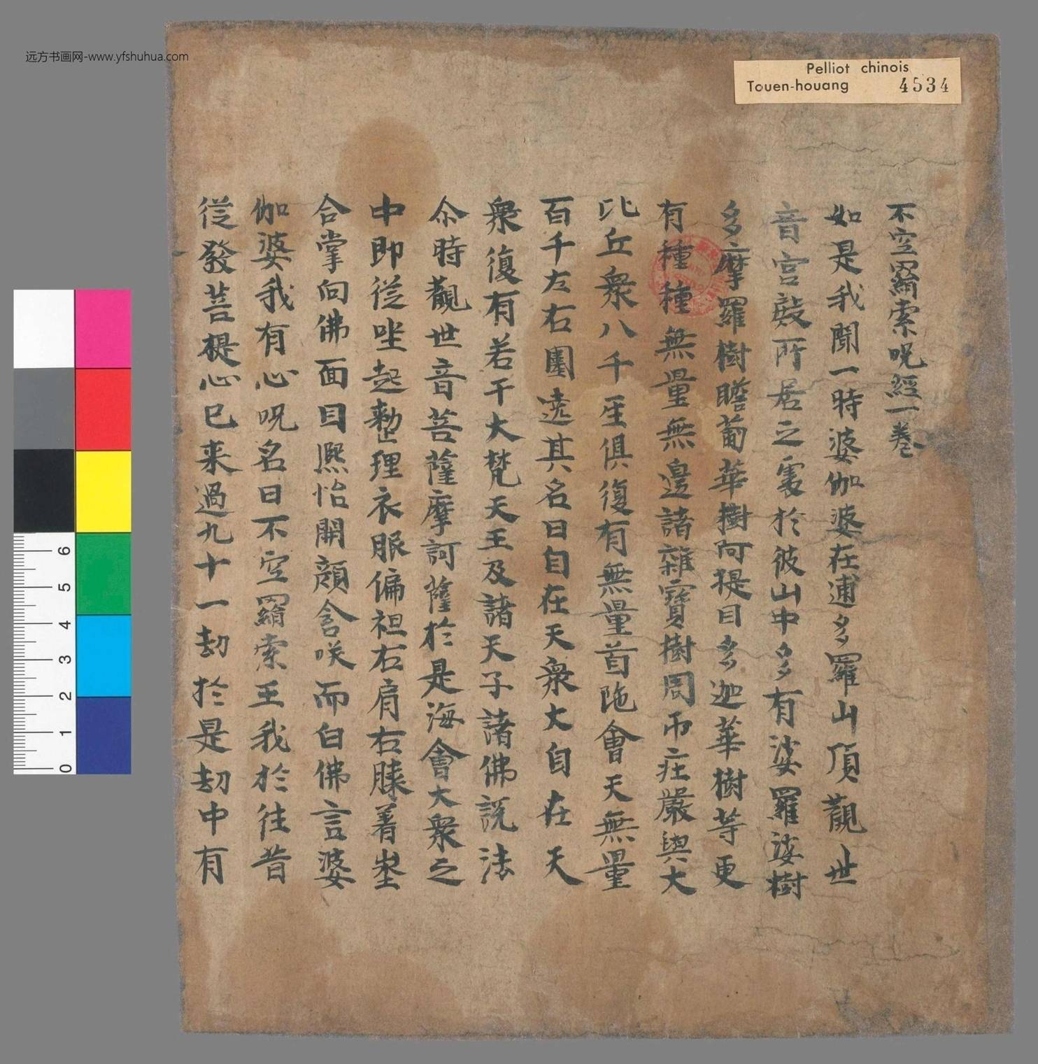 远方书画网-www.yfshuhua.com
Pelliot chinois
Touen-houang 4534
不空羂索呪經一卷
如是我聞一時婆伽婆在逋多羅山頂觀世
音宮殿所居之處於彼山中多有娑羅娑樹
多摩羅樹瞻蔔華樹阿提目多迦華樹等更
有種種無量無邊諸雜寶樹周帀莊嚴與大
比丘衆八千人俱復有無量首陁會天無量
百千左右圍遶其名曰自在天衆大自在天
衆復有若干大梵天王及諸天子諸佛說法
尒時觀世音菩薩摩訶薩於是海會大衆之
中即從坐起整理衣服偏袒右肩右膝著地
合掌向佛面目熙怡開顏含咲而白佛言婆
伽婆我有心呪名曰不空羂索王我於往昔
從發菩提心已来過九十一劫於是劫中有
6
5
4
3
2
1
0